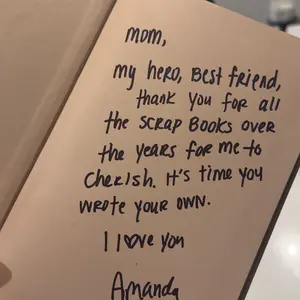 MOM,
my hero, Best friend,
thank you for all
the scrap Books over
the years for me to
Cherish. It's time you
wrote your own.
I love you
Amanda